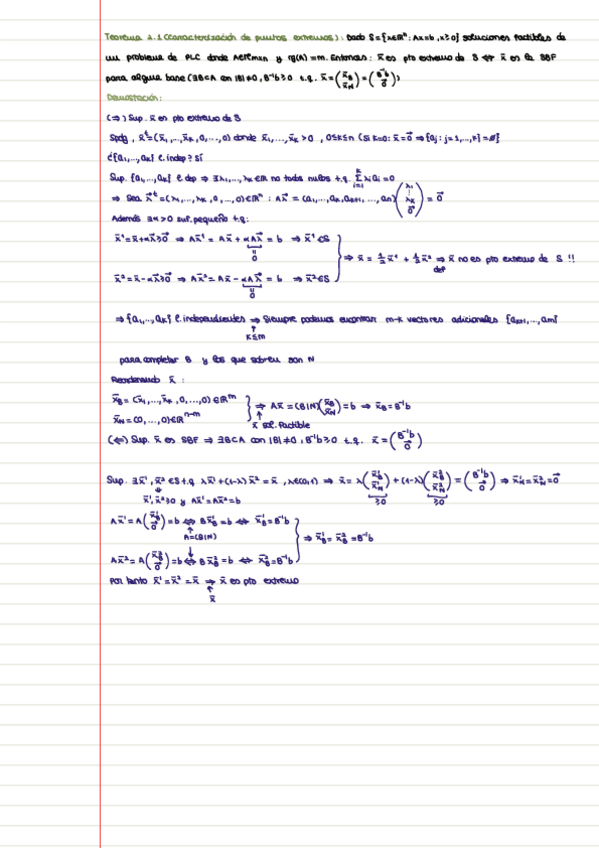 Teorema 2.1 (Caracterización de puntos extremos): Dado S={x∈ℝⁿ: Ax=b, x≥0} soluciones factibles de
un problema de PLC donde A∈ℝmxn y rg(A)=m. Entonces: x̄ es pto extremo de S ⇔ x̄ es la SBF
para alguna base (∃B⊂A con |B|≠0, B⁻¹b≥0 t.q. x̄=(x̄_B x̄_N)=(B⁻¹b 0⃗))
Demostración:
(⇒) Sup. x̄ es pto extremo de S
Spdg, x̄ᵗ=(x̄₁,...,x̄ₖ,0,...,0) donde x̄₁,...,x̄ₖ>0, 0≤k≤n (Si k=0: x̄=0⃗ ⇒ {aj: j=1,...,k}=∅)
¿{a₁,...,aₖ} l. indep? Sí
Sup. {a₁,...,aₖ} l. dep ⇒ ∃λ₁,...,λₖ∈ℝ no todos nulos t.q. Σᵢ₌₁ᵏ λᵢaᵢ=0
⇒ Sea λ⃗ᵗ=(λ₁,...,λₖ,0,...,0)∈ℝⁿ: Aλ⃗ = (a₁,...,aₖ,aₖ₊₁,...,aₙ)(λ₁ ⋮ λₖ 0⃗) = 0⃗
Además ∃α>0 suf. pequeño t.q:
x̄¹=x̄+αλ⃗≥0⃗ ⇒ Ax̄¹ = Ax̄ + αAλ⃗ = b ⇒ x̄¹∈S
0
⇒ x̄ = ½x̄¹ + ½x̄² ⇒ x̄ no es pto extremo de S !!
def
x̄²=x̄-αλ⃗≥0⃗ ⇒ Ax̄²= Ax̄ - αAλ⃗ = b ⇒ x̄²∈S
0
⇒ {a₁,...,aₖ} l. independientes ⇒ Siempre podemos encontrar m-k vectores adicionales {aₖ₊₁,...,aₘ}
k≤m
para completar B y los que sobren son N
Reordenando x̄:
x̄_B = (x̄₁,...,x̄ₖ,0,...,0)∈ℝᵐ
⇒ Ax̄ = (B|N)(x̄_B x̄_N)=b ⇒ x̄_B=B⁻¹b
x̄_N=(0,...,0)∈ℝⁿ⁻ᵐ
x̄ sol. factible
(⇐) Sup. x̄ es SBF ⇒ ∃B⊂A con |B|≠0, B⁻¹b≥0 t.q. x̄=(B⁻¹b 0⃗)
Sup. ∃x̄¹, x̄²∈S t.q. λx̄¹+(1-λ)x̄² = x̄, λ∈(0,1) ⇒ x̄= λ(x̄¹_B x̄¹_N)+(1-λ)(x̄²_B x̄²_N)=(B⁻¹b 0⃗) ⇒ x̄¹_N=x̄²_N=0⃗
x̄¹,x̄²≥0 y Ax̄¹=Ax̄²=b ≥0 ≥0
Ax̄¹=A(x̄¹_B 0⃗)=b ⇔ Bx̄¹_B=b ⇔ x̄¹_B=B⁻¹b
A=(B|N)
⇒ x̄¹_B= x̄²_B =B⁻¹b
Ax̄²=A(x̄²_B 0⃗)=b ⇔ Bx̄²_B=b ⇔ x̄²_B=B⁻¹b
Por tanto x̄¹=x̄²=x̄ ⇒ x̄ es pto extremo
x̄